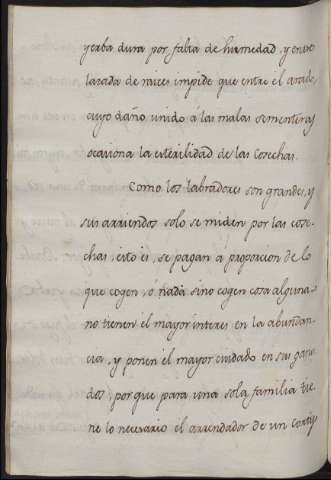 yerba dura por falta de humedad, y entre
lazada de raices impide que entre el arado,
cuyo daño unido á las malas sementeras
ocasiona la esterilidad de las Cosechas.
Como los labradores son grandes, y
sus arriendos solo se miden por las cose-
chas, esto es, se pagan á proporcion de lo
que cogen, ó nada sino cogen cosa alguna
no tienen el mayor interes en la abundan-
cia, y ponen el mayor cuidado en sus gana-
dos, porque para una sola familia tie-
ne lo necesario el arrendador de un Cortijo